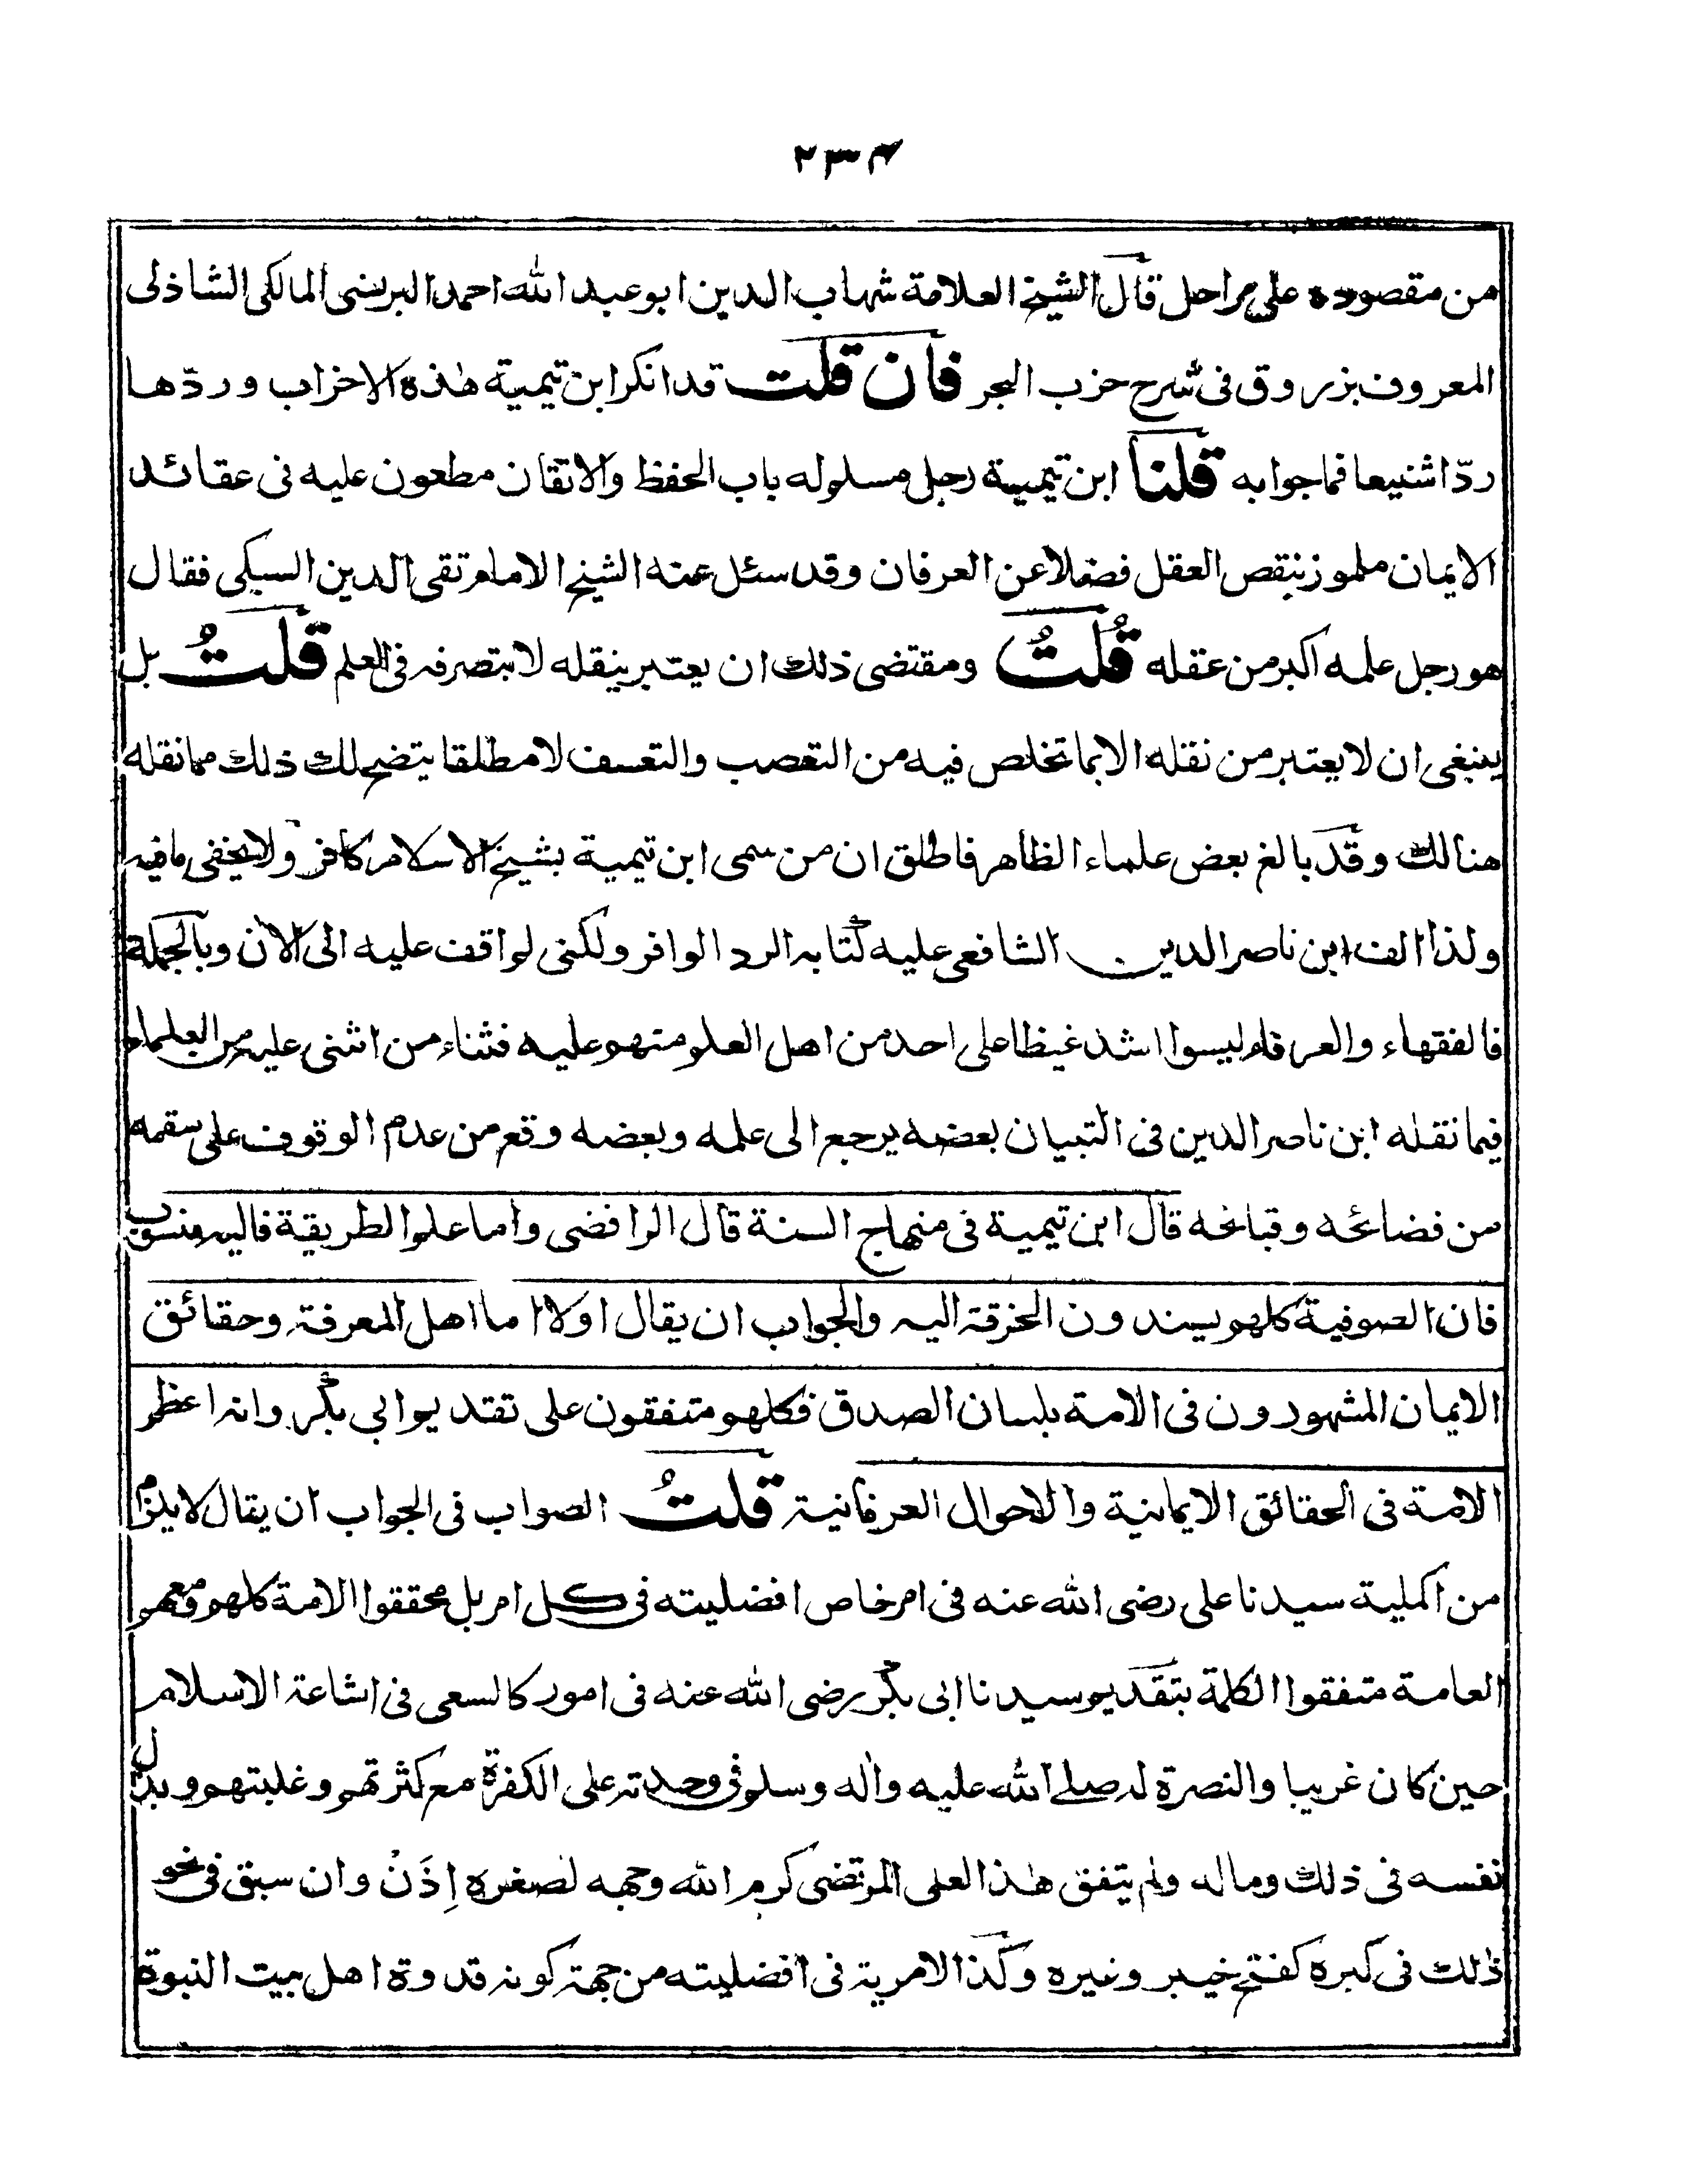 ۲۳۴
من مقصوده على مراحل قال الشيخ العلامة شهاب الدين ابو عبد الله احمد البرنسى المالكى الشاذلى
المعروف بزروق فى شرح حزب البحر فان قلت قد انكر ابن تيمية هٰذه الاحزاب وردّها
ردّا شنيعا فما جوابه قلنا ابن تيمية رجل مسلوله باب الحفظ والاتقان مطعون عليه فى عقائد
الايمان ملموز بنقص العقل فضلا عن العرفان وقد سئل عنه الشيخ الامام تقى الدين السبكى فقال
هو رجل علمه اكبر من عقله قُلتُ ومقتضى ذلك ان يعتبر بنقله لا بتصرفه فى العلم قلتُ بل
ينبغى ان لا يعتبر من نقله الا بما تخلص فيه من التعصب والتعسف لا مطلقا يتضح لك ذلك مما نقله
هنالك وقد بالغ بعض علماء الظاهر فاطلق ان من سمى ابن تيمية بشيخ الاسلام كافر ولا يخفى ما فيه
ولذا الف ابن ناصر الدين الشافعى عليه كتابه الرد الوافر ولكنى لم اقف عليه الى الآن وبالجملة
فالفقهاء والعرفاء ليسوا اشد غيظا على احد من اهل العلم منهم عليه فثناء من اثنى عليه من العلماء
فيما نقله ابن ناصر الدين فى التبيان بعضه يرجع الى علمه وبعضه وقع من عدم الوقوف على سقمه
من فضائحه وقبائحه قال ابن تيمية فى منهاج السنة قال الرافضى واما علم الطريقة فاليه منسوب
فان الصوفية كلهم يسندون الخرقة اليه والجواب ان يقال اولا اما اهل المعرفة وحقائق
الايمان المشهورون فى الامة بلسان الصدق فكلهم متفقون على تقديم ابى بكر وانه اعظم
الامة فى الحقائق الايمانية والاحوال العرفانية قلتُ الصواب فى الجواب ان يقال لا يلزم
من اكملية سيدنا على رضى الله عنه فى امر خاص افضليته فى كل امر بل محققوا الامة كلهم ومعهم
العامة متفقوا الكلمة بتقديم سيدنا ابى بكر رضى الله عنه فى امور كالسعى فى اشاعة الاسلام
حين كان غريبا والنصرة له صلى الله عليه واٰله وسلم فى وحدته على الكفرة مع كثرتهم وغلبتهم وبذل
نفسه فى ذلك وماله ولم يتفق هٰذا لعلى المرتضى كرم الله وجهه لصغره إِذَنْ وان سبق فى نحو
ذٰلك فى كبره كفتح خيبر وغيره وكذا لا مرية فى افضليته من جهة كونه قدوة اهل بيت النبوة